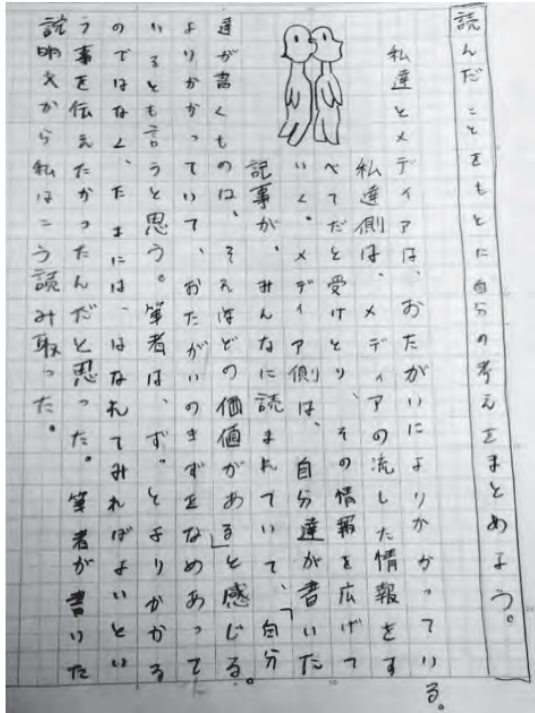 読んだことをもとに自らの考えをまとめよう。
私達とメディアは、おたがいによりかかっている。
私達側は、メディアの流した情報をす
べてだと受けとり、その情報を広げて
いく。メディア側は、自分達が書いた
記事が、みんなに読まれていて、「自分
達が書くものは、それほどの価値がある」と感じる。
よりかかっていて、おたがいのきずをなめあって
いるとも言うと思う。筆者は、ず。とよりかかる
のではなく、たまには、はなれてみればよいとい
う事を伝えたかったんだと思った。筆者が書いた
説明文から私はこう読み取った。